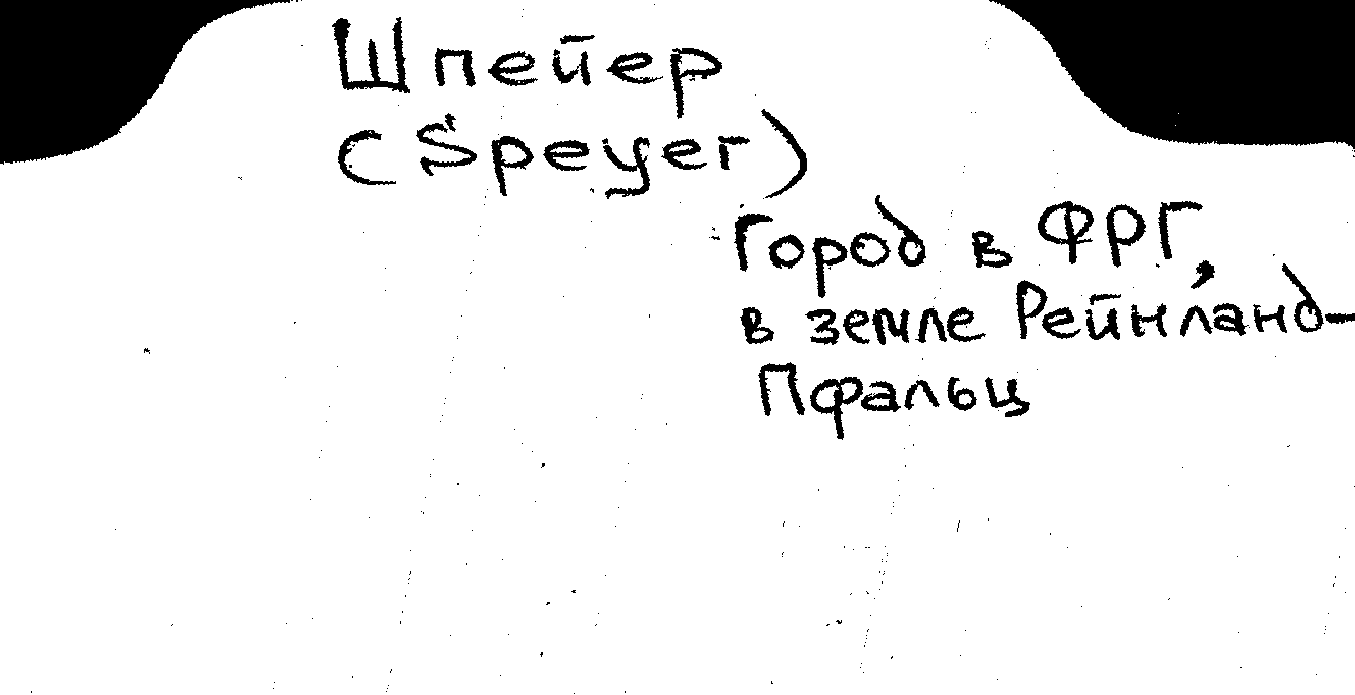 Шпейер
(Speyer)
Город в ФРГ,
в земле Рейнланд-
Пфальц